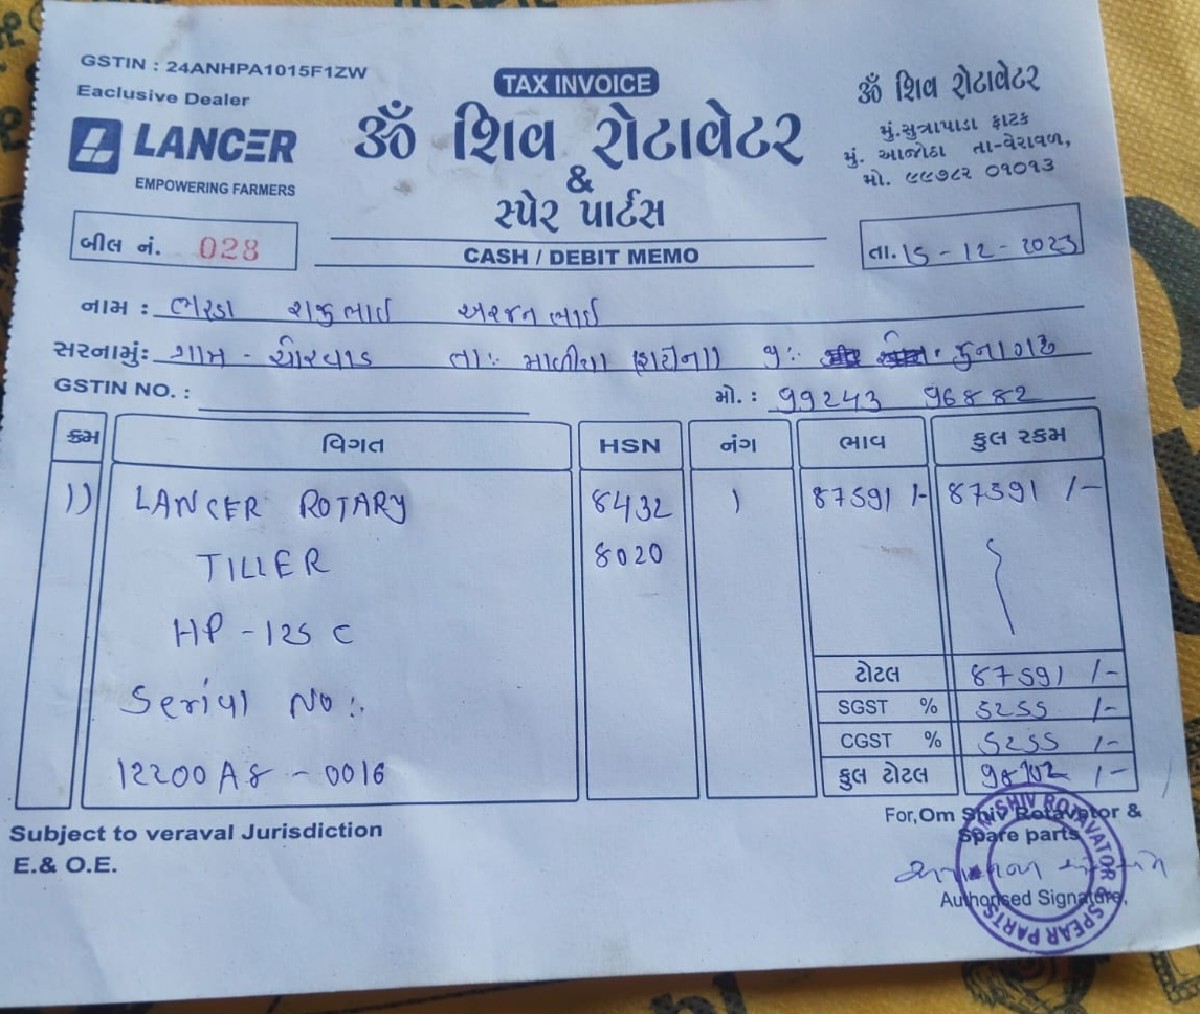 GSTIN : 24ANHPA1015F1ZW
Eaclusive Dealer
LANCER
EMPOWERING FARMERS
TAX INVOICE
ૐ શિવ રોટાવેટર
&
સ્પેર પાર્ટસ
CASH / DEBIT MEMO
ૐ શિવ રોટાવેટર
મું.સુત્રાપાડા ફાટક
મું. આજોઠા તા-વેરાવળ,
મો. ૯૯૭૮૨ ૦૧૦૧૩
બીલ નં. 028
તા. 15-12-2023
નામ : અરજનભાઈ
સરનામું: ગામ - ચોરવાડ તા: માળીયા (હાટીના) જુનાગઢ
GSTIN NO. :
મો. : 99243 96882
ક્રમ વિગત HSN નંગ ભાવ કુલ રકમ
1) LANCER ROTARY 8432 1 87591 /- 87591 /-
TILLER 8020
HP - 125 C
Serial No :.
12200A8 - 0016
ટોટલ 87591 /-
SGST % 5255 /-
CGST % 5255 /-
કુલ ટોટલ /-
Subject to veraval Jurisdiction
E.& O.E.
For,Om Shiv Rotavetor &
Spare parts
Authorised Signature.
OM SHIV ROTAVATOR & SPEAR PARTS